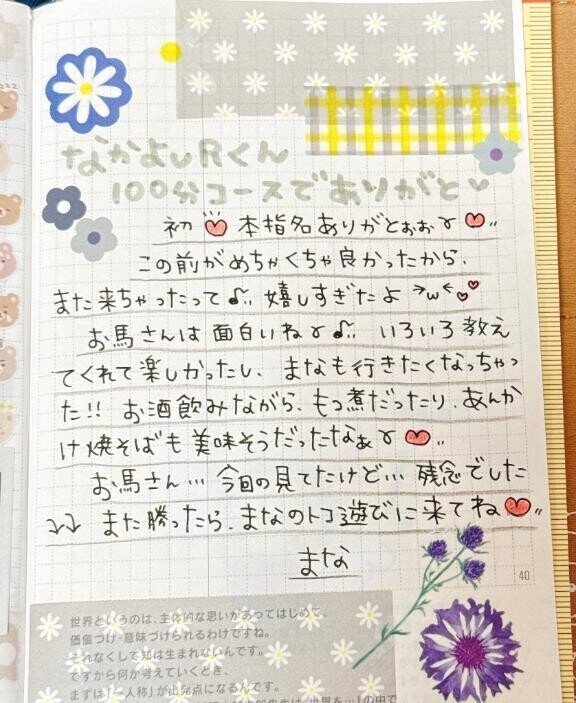 なかよしRくん
100分コースでありがと♡
初♡本指名ありがとぉぉ♡
この前がめちゃくちゃ良かったから、
また来ちゃったって♪ 嬉しすぎたよ >ω<♡
お馬さんは面白いね♪ いろいろ教え
てくれて楽しかったし、まなも行きたくなっちゃっ
た!! お酒飲みながら、もつ煮だったり、あんか
け焼そばも美味そうだったなぁ♡
お馬さん… 今回の見てたけど… 残念でした
また勝ったら、まなのトコ遊びに来てね♡
まな
40
世界というのは、主体的な思いがあってはじめて、
価値づけ・意味づけられるわけですね。
それなくして知は生まれないんです。
ですから何か考えていくとき、
まずは「一人称」が出発点になるんです。